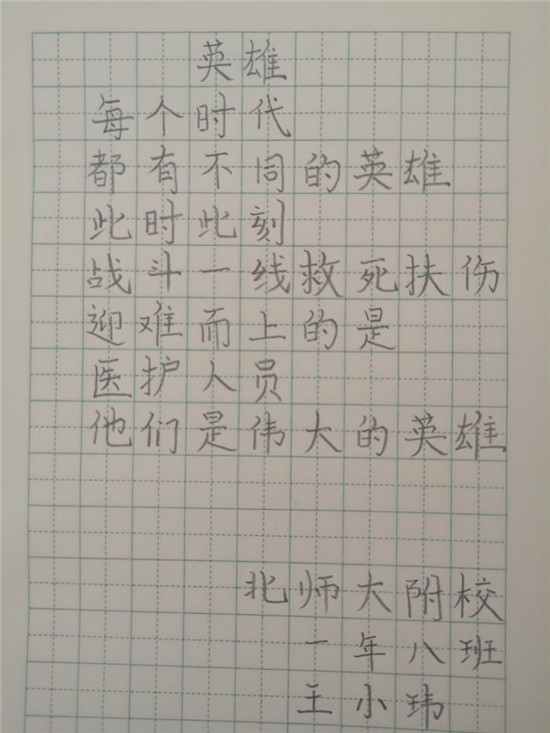 英雄
每个时代
都有不同的英雄
此时此刻
战斗一线救死扶伤
迎难而上的是
医护人员
他们是伟大的英雄
北师大附校
一年八班
王小玮